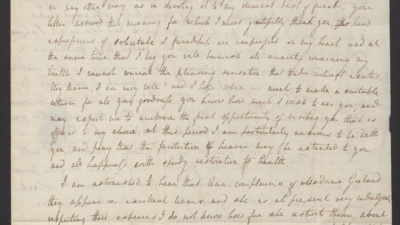 in any other way as in devoting it to my dearest best of friends, your
letter received this morning for which I most gratefully thank you, the kind
expressions of solicitude & friendship are impressed on my heart and at
the same time that I beg you will banish all anxiety concerning my
health I cannot conceal the pleasing sensation that
I am very well and I to make a suitable
return for all your goodness you know how much I wish to see you, and
may expect me to embrace the first opportunity of seeing you that is
offered to my choice at this period I am particularly anxious to be with
you, and pray that the protection of heaven may be extended to you
and all happiness with speedy restoration to health
I am astonished to hear that Unice complains of
they appear in excellent terms, and she is at present very indulgent
respecting their expenses I do not know how far she about